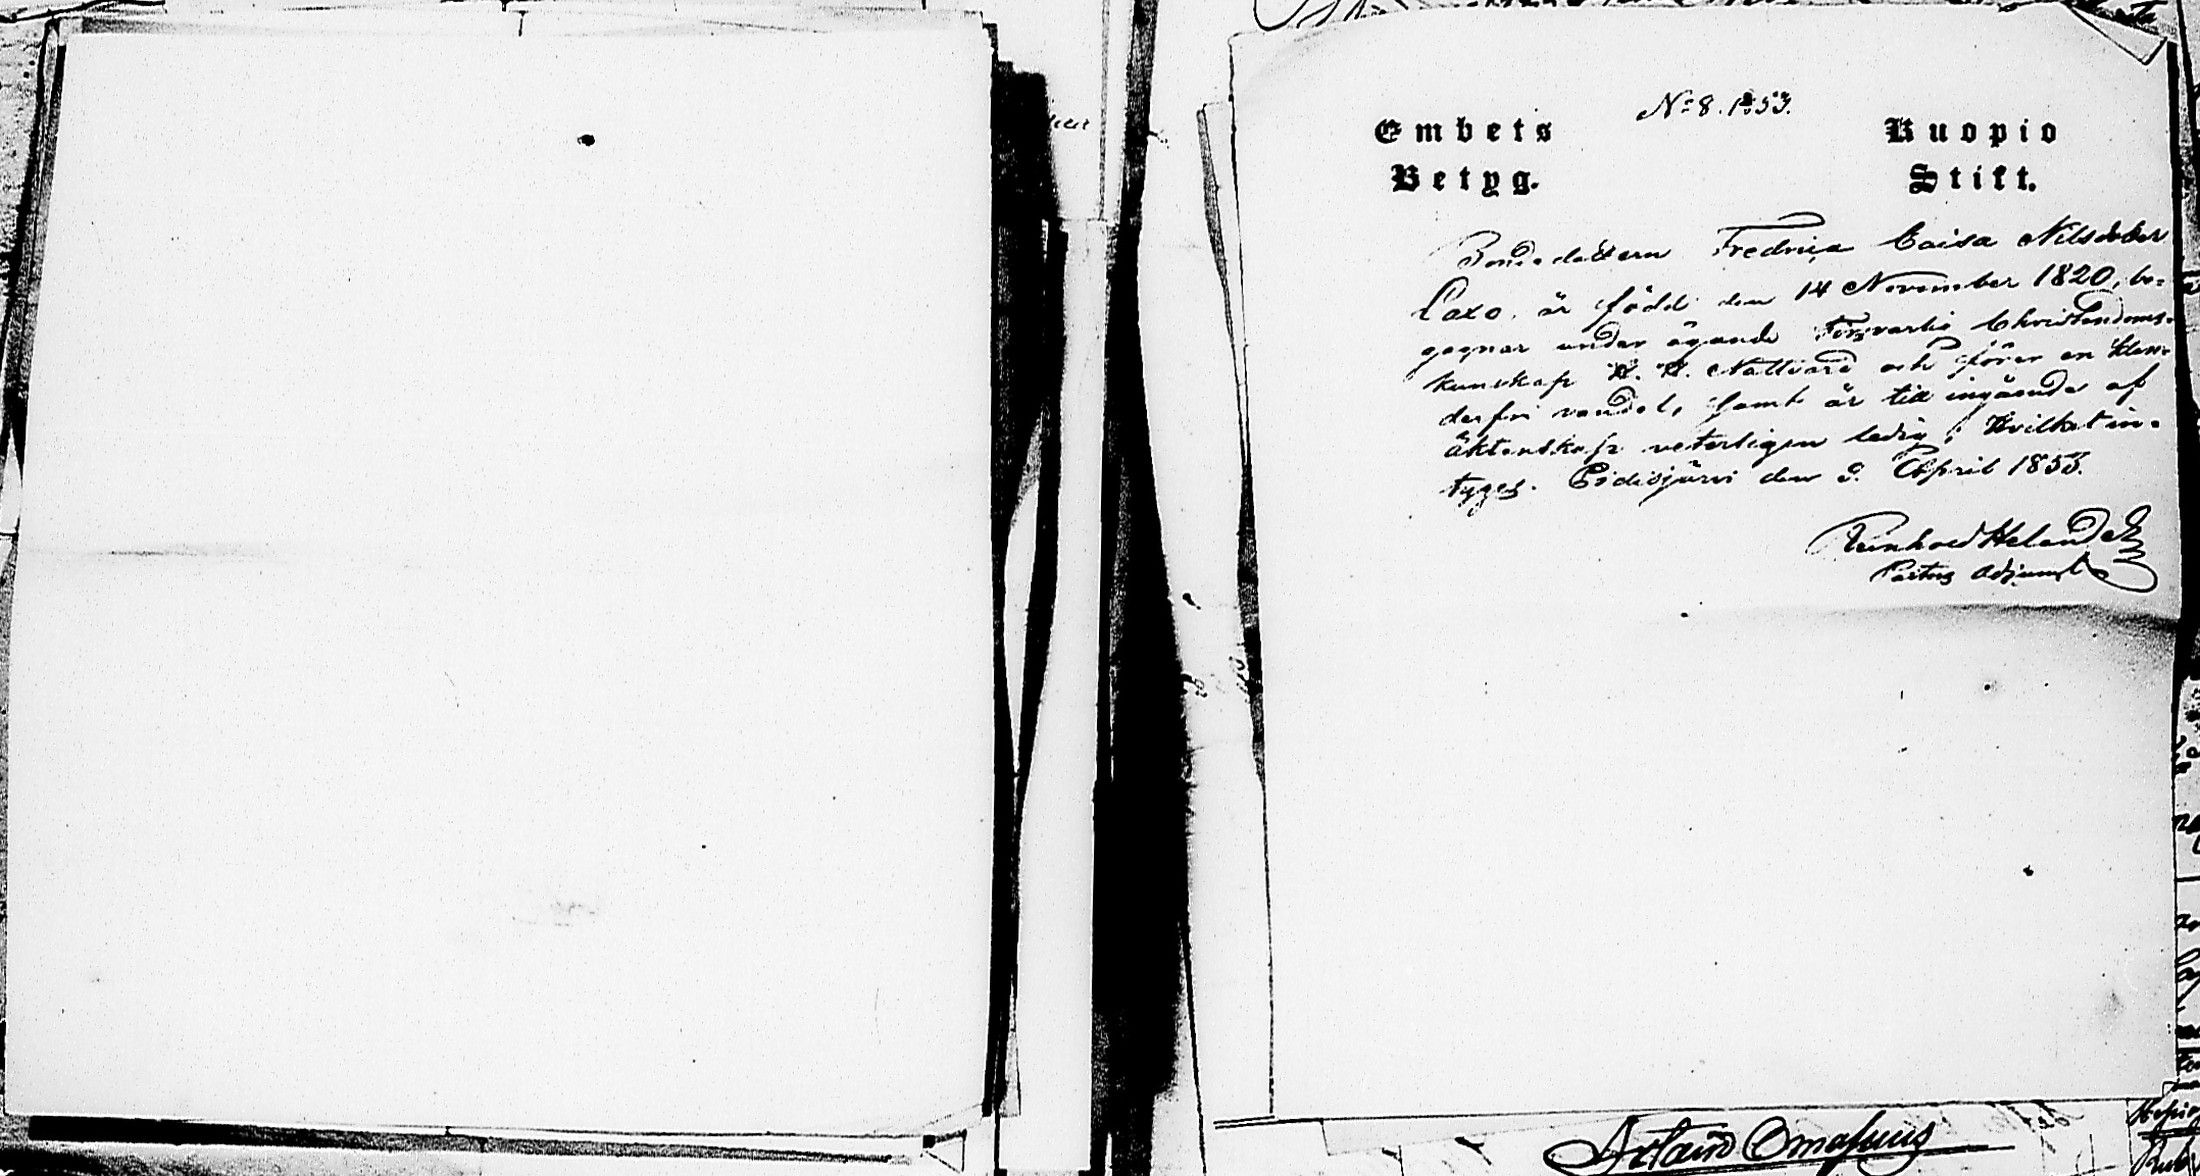 No 8. 1853.
Embets Kuopio
Betyg. Stift.
Bondedottern Fredrica Caisa Nilsdotter
Laxo, är född den 14 November 1820, be-
gagnar under ägande Förswarlig Christendoms-
kunskap H. H. Nattvard och förer en klan-
derfri vandel, samt är till ingående af
äktenskap veterligen ledig; Hvilket in-
tygas. Pidisjärvi den 9. April 1853.
Reinhold Helander
Pastors Adjunct